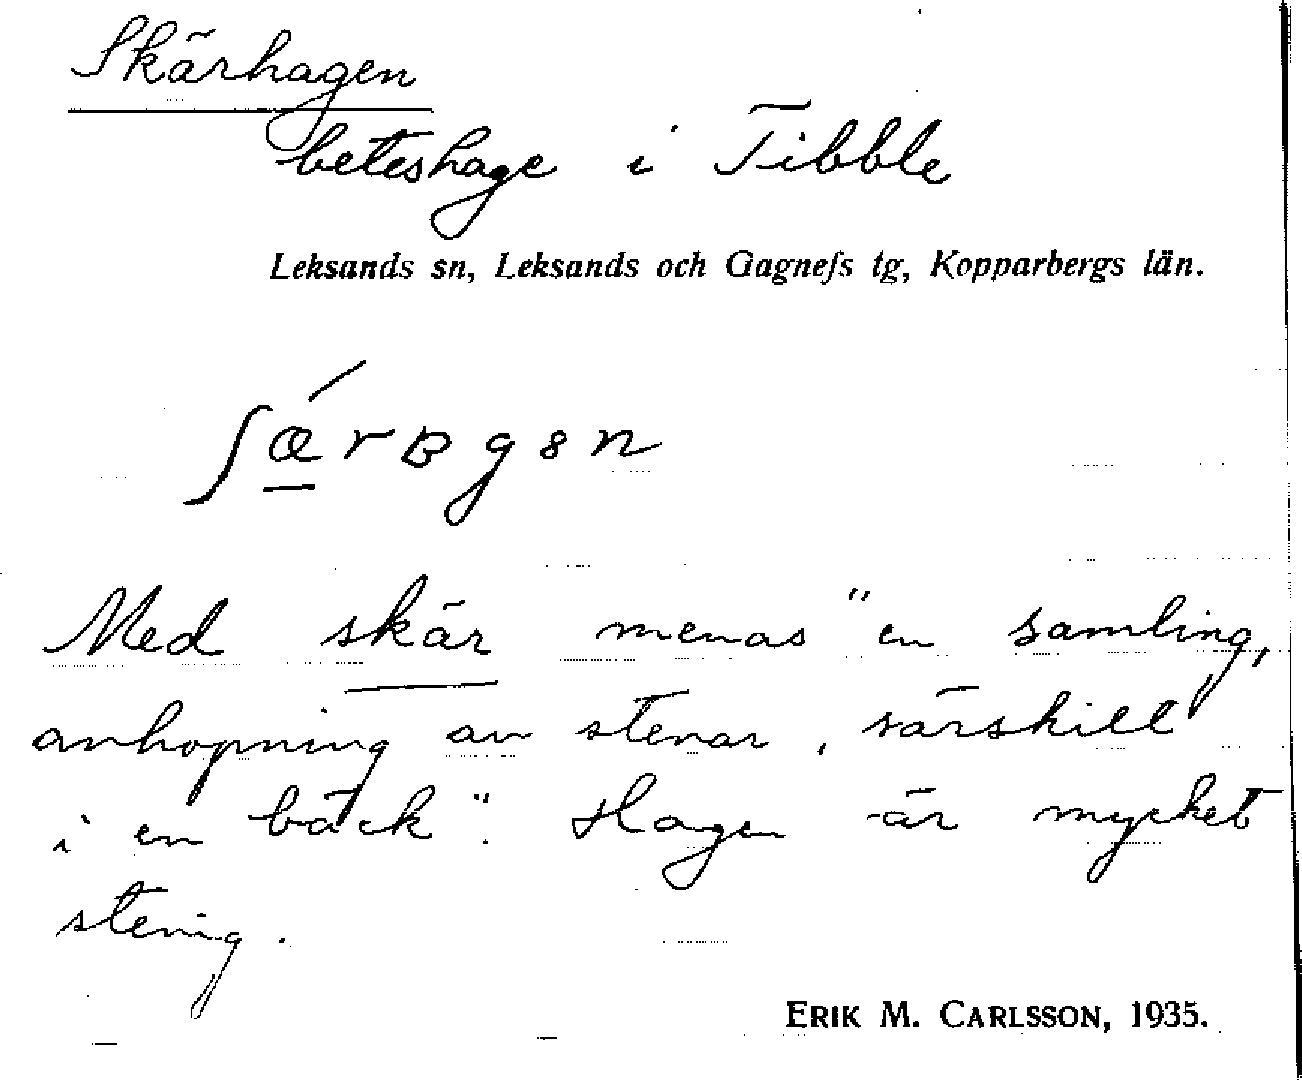 Skärhagen
beteshage i Tibble
Leksands sn, Leksands och Gagnefs tg, Kopparbergs län.
Med skär menas "en samling,
anhopning av stenar, särskilt
i en bäck". Hagen är mycket
stenig.
ERIK M. CARLSSON, 1935.